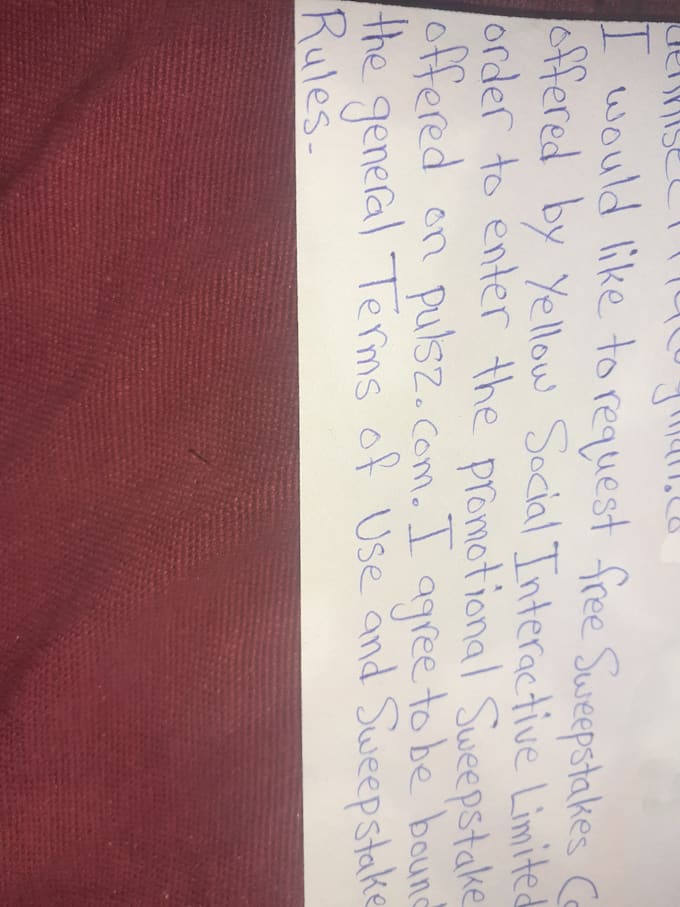 I would like to request free Sweepstakes
offered by Yellow Social Interactive Limited
order to enter the promotional Sweepstake
offered on pulsz.com. I agree to be bound
the general Terms of Use and Sweepstake
Rules.